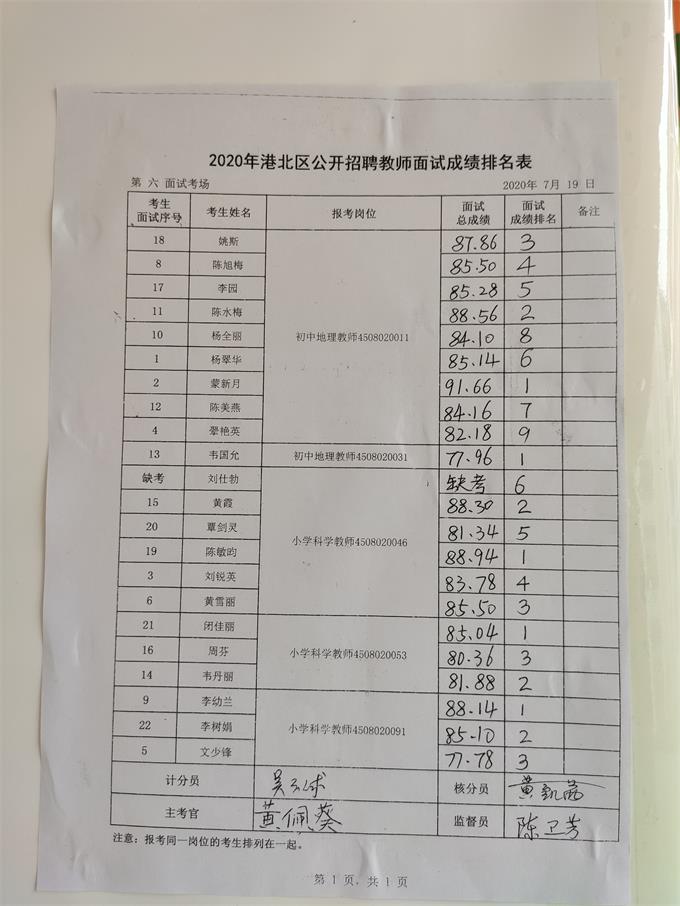 2020年港北区公开招聘教师面试成绩排名表
第 六 面试考场 2020年 7月 19 日
考生面试序号 考生姓名 报考岗位 面试总成绩 面试成绩排名 备注
18 姚斯 87.86 3
8 陈旭梅 85.50 4
17 李园 85.28 5
11 陈水梅 88.56 2
10 杨全丽 初中地理教师4508020011 84.10 8
1 杨翠华 85.14 6
2 蒙新月 91.66 1
12 陈美燕 84.16 7
4 翚艳英 82.18 9
13 韦国允 初中地理教师4508020031 77.96 1
缺考 刘仕勃 缺考 6
15 黄霞 88.30 2
20 覃剑灵 小学科学教师4508020046 81.34 5
19 陈敏昀 88.94 1
3 刘锐英 83.78 4
6 黄雪丽 85.50 3
21 闭佳丽 85.04 1
16 周芬 小学科学教师4508020053 80.36 3
14 韦丹丽 81.88 2
9 李幼兰 88.14 1
22 李树娟 小学科学教师4508020091 85.10 2
5 文少锋 77.78 3
计分员 核分员
主考官 黄佩葵 监督员 陈卫芳
注意：报考同一岗位的考生排列在一起。
第 1 页，共 1 页